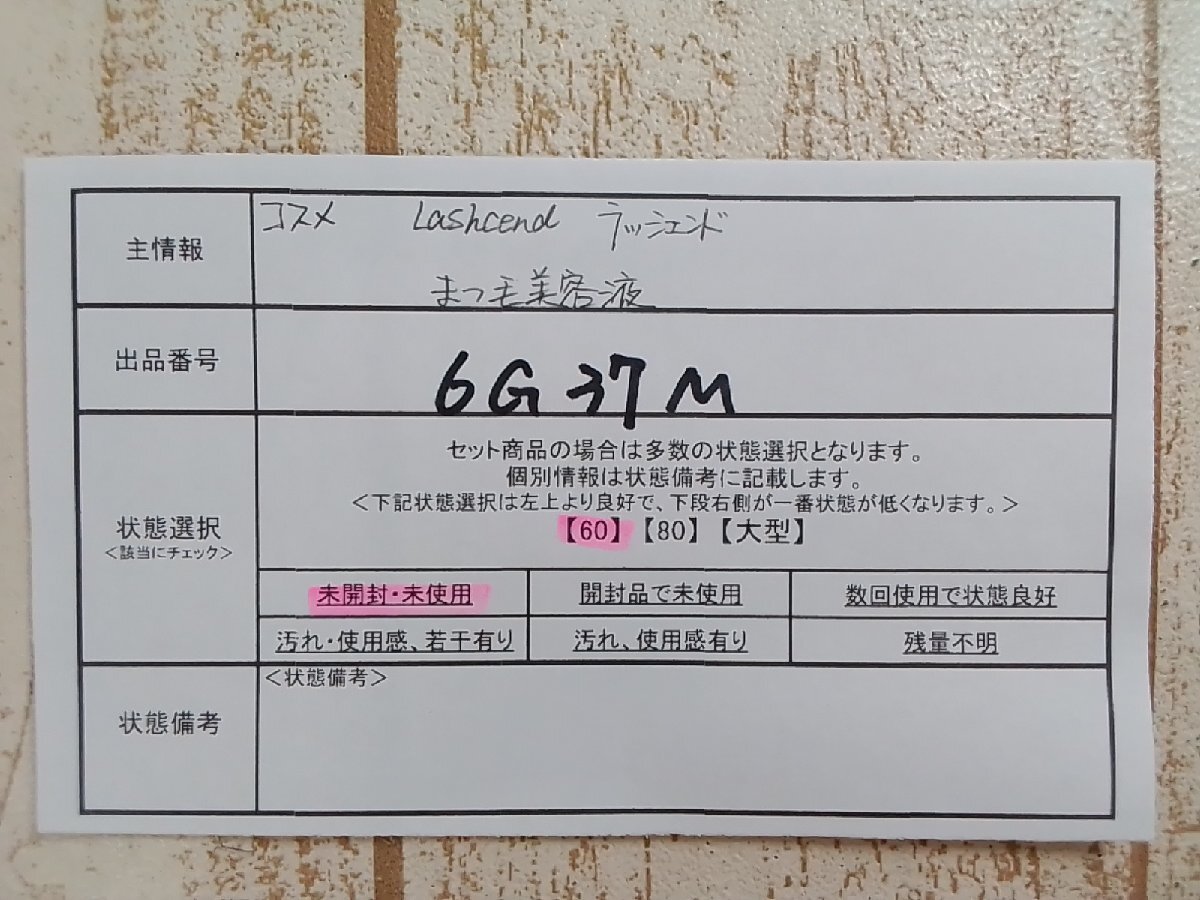 主情報
コスメ Lashcend ラッシェンド
まつ毛美容液
出品番号
6G37M
状態選択
＜該当にチェック＞
セット商品の場合は多数の状態選択となります。
個別情報は状態備考に記載します。
＜下記状態選択は左上より良好で、下段右側が一番状態が低くなります。＞
【60】【80】【大型】
未開封・未使用 開封品で未使用 数回使用で状態良好
汚れ・使用感、若干有り 汚れ、使用感有り 残量不明
状態備考
＜状態備考＞